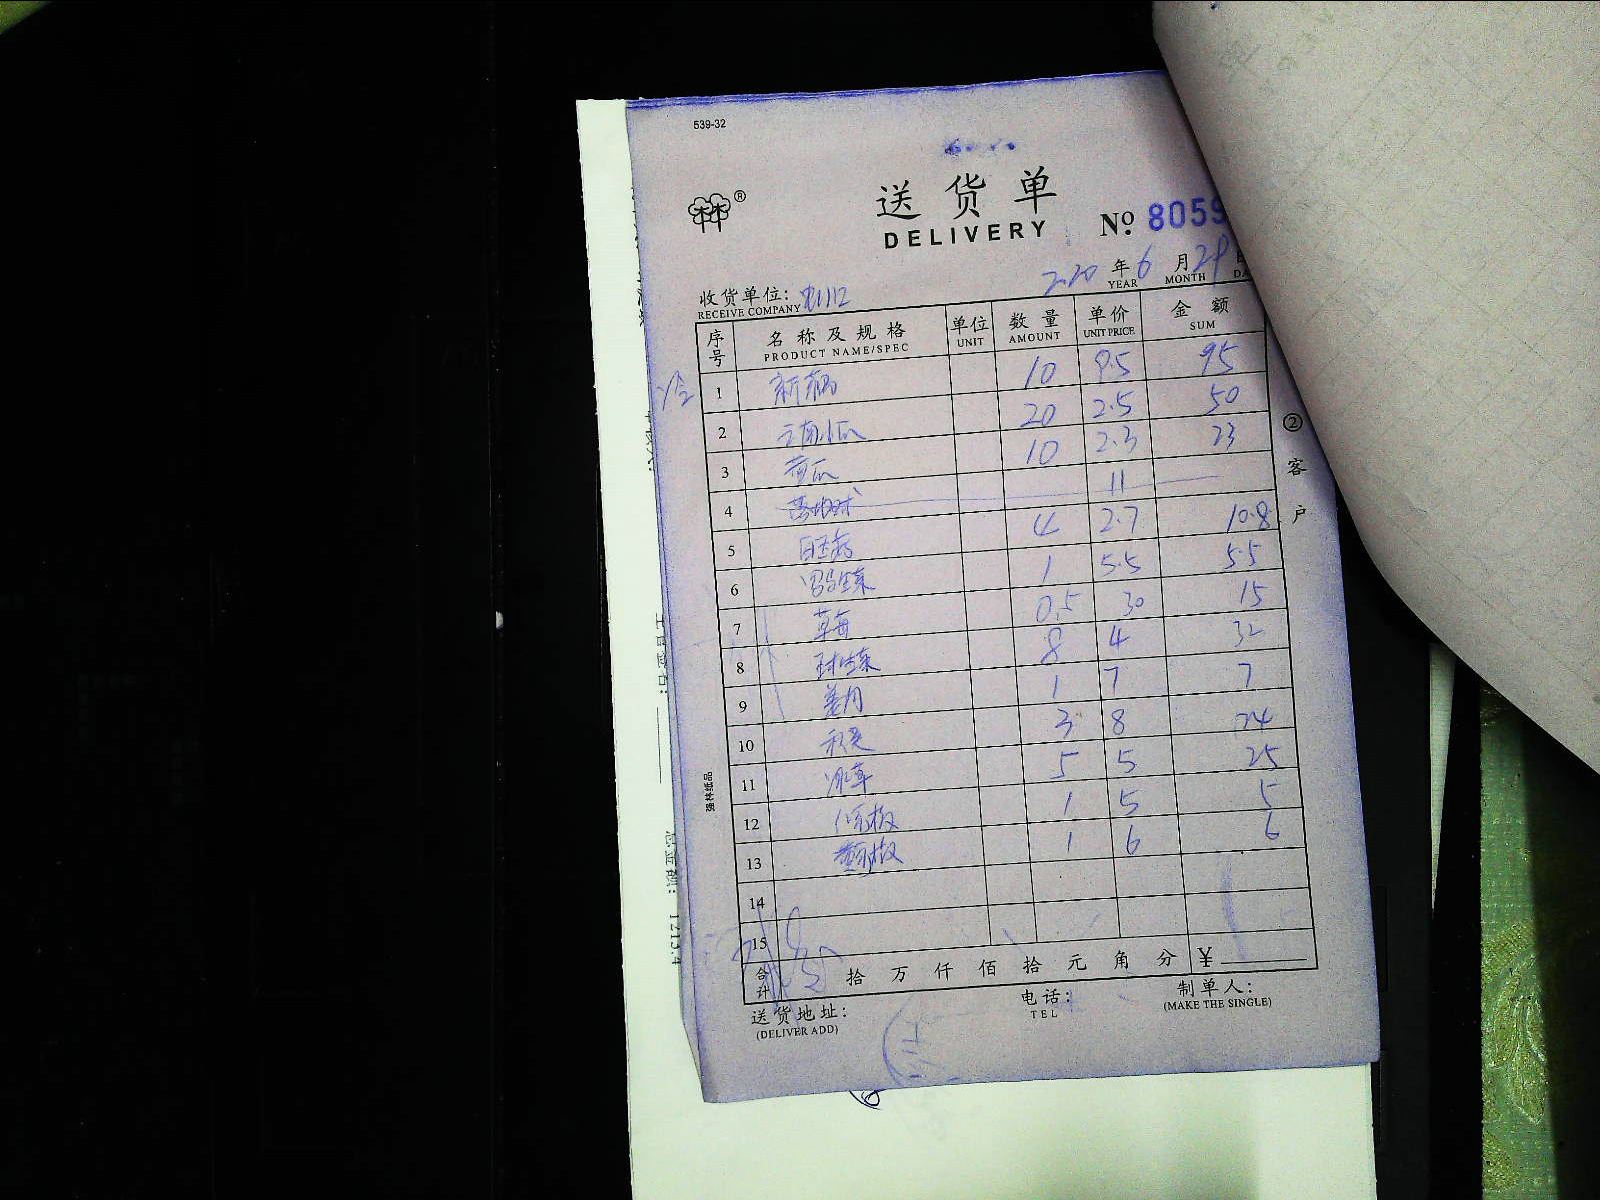 539-32
林®
送货单
DELIVERY
№ 8059
2020 年 6 月 29
YEAR MONTH
收货单位:
RECEIVE COMPANY
序号 名称及规格 单位 数量 单价 金额
PRODUCT NAME/SPEC UNIT AMOUNT UNIT PRICE SUM
冷
1 10 9.5 95
2 云南小瓜 20 2.5 50
3 黄瓜 10 2.3 23
4 11
5 4 2.7 10.8
6 罗马生菜 1 5.5 5.5
7 草莓 0.5 30 15
8 球生菜 8 4 32
9 姜月 1 7 7
10 秋葵 3 8 24
11 冰草 5 5 25
12 1 5 5
13 1 6 6
14
15
合计 拾 万 仟 佰 拾 元 角 分 ¥
送货地址:
(DELIVER ADD)
电话:
TEL
制单人:
(MAKE THE SINGLE)
②客户
强林纸品